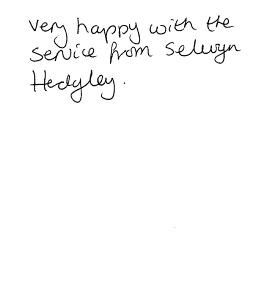 very happy with the
service from Selwyn
Hedgley.